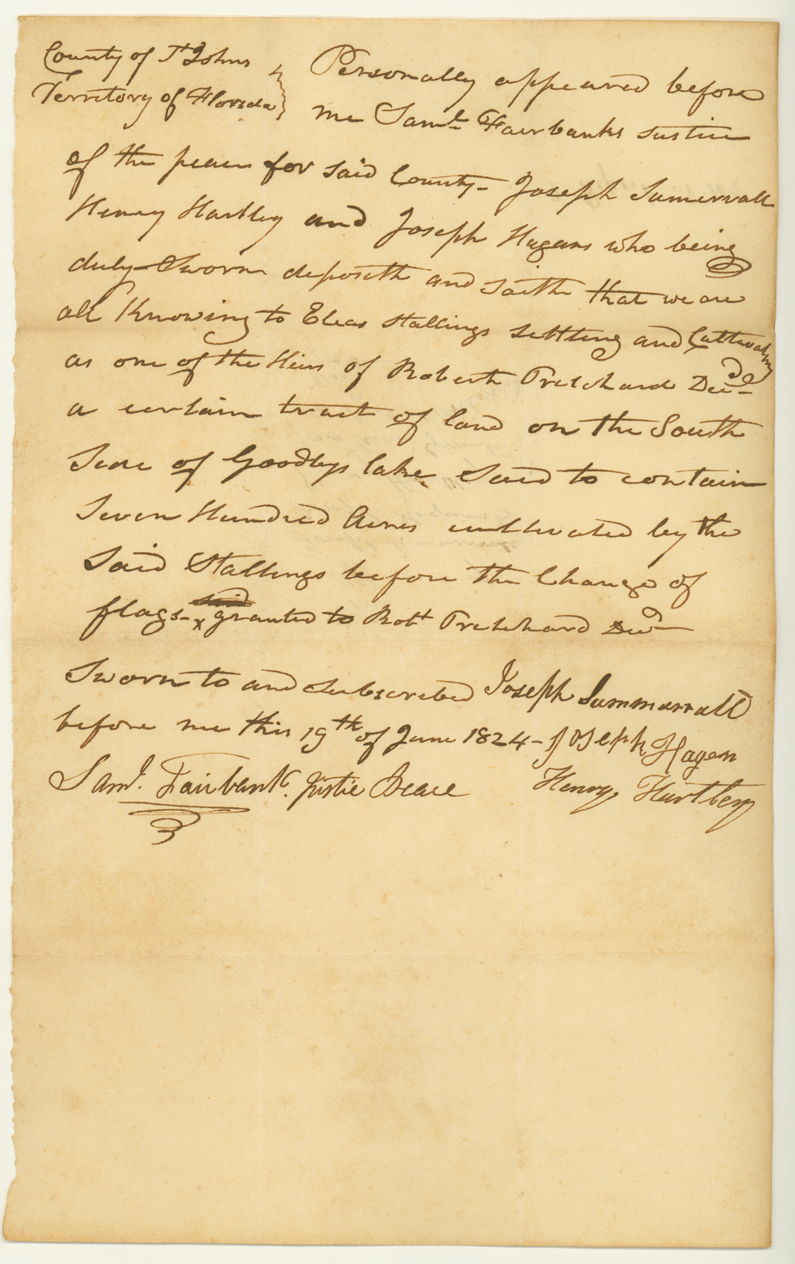 County of St Johns
Territory of Florida
Personally appeared before
me Saml Fairbanks Justice
of the peace for said County - Joseph Sumerall
Henry Hartley and Joseph Hagans who being
duly Sworn deposeth and saith that we are
all Knowing to Elias Stallings settling and Cultivating
as one of the Heirs of Robert Pritchard Decd
a certain tract of land on the South
Side of Goodbys lake Said to contain
Seven Hundred Acres cultivated by the
Said Stallings before the Change of
flags - x granted to Robt Pritchard Decd
Sworn to and subscribed Joseph Summarall
before me this 19th of June 1824 - Joseph Hagen
Saml. Fairbank. Justice Peace Henry Hartley